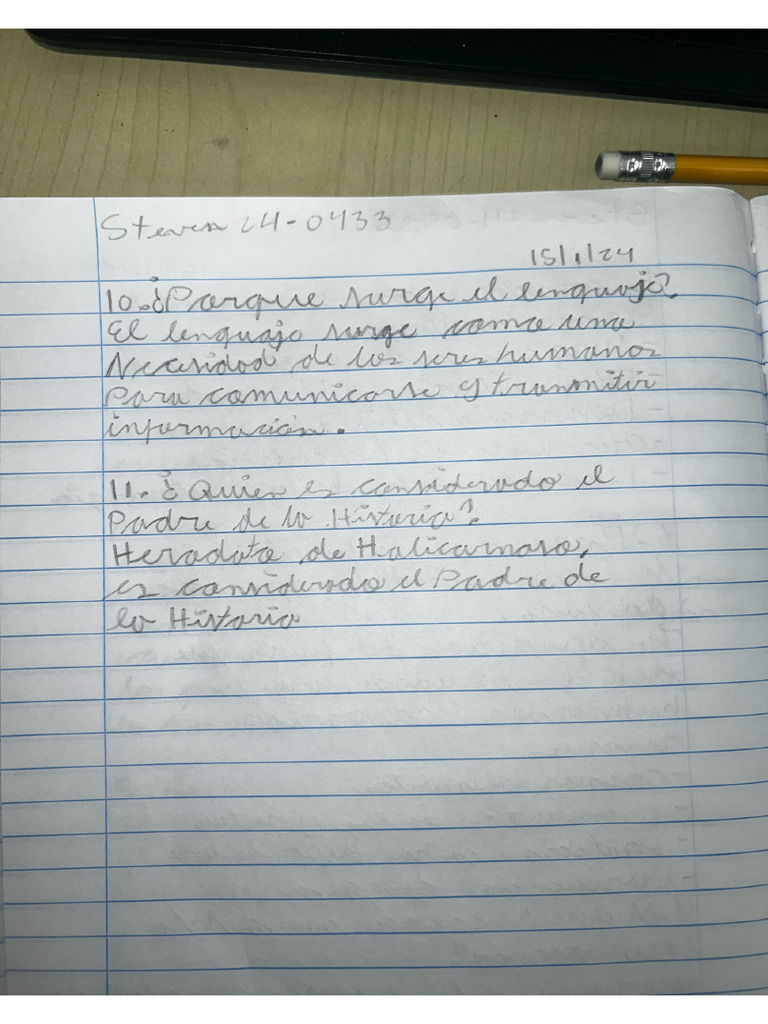 Steven 24-0433
15/1/24
10. ¿Porque surge el lenguaje?
El lenguaje surge como una
Necesidad de los seres humanos
Para comunicarse y transmitir
información.
11. ¿Quien es considerado el
Padre de la Historia?
Herodoto de Halicarnaso,
es considerado el Padre de
la Historia